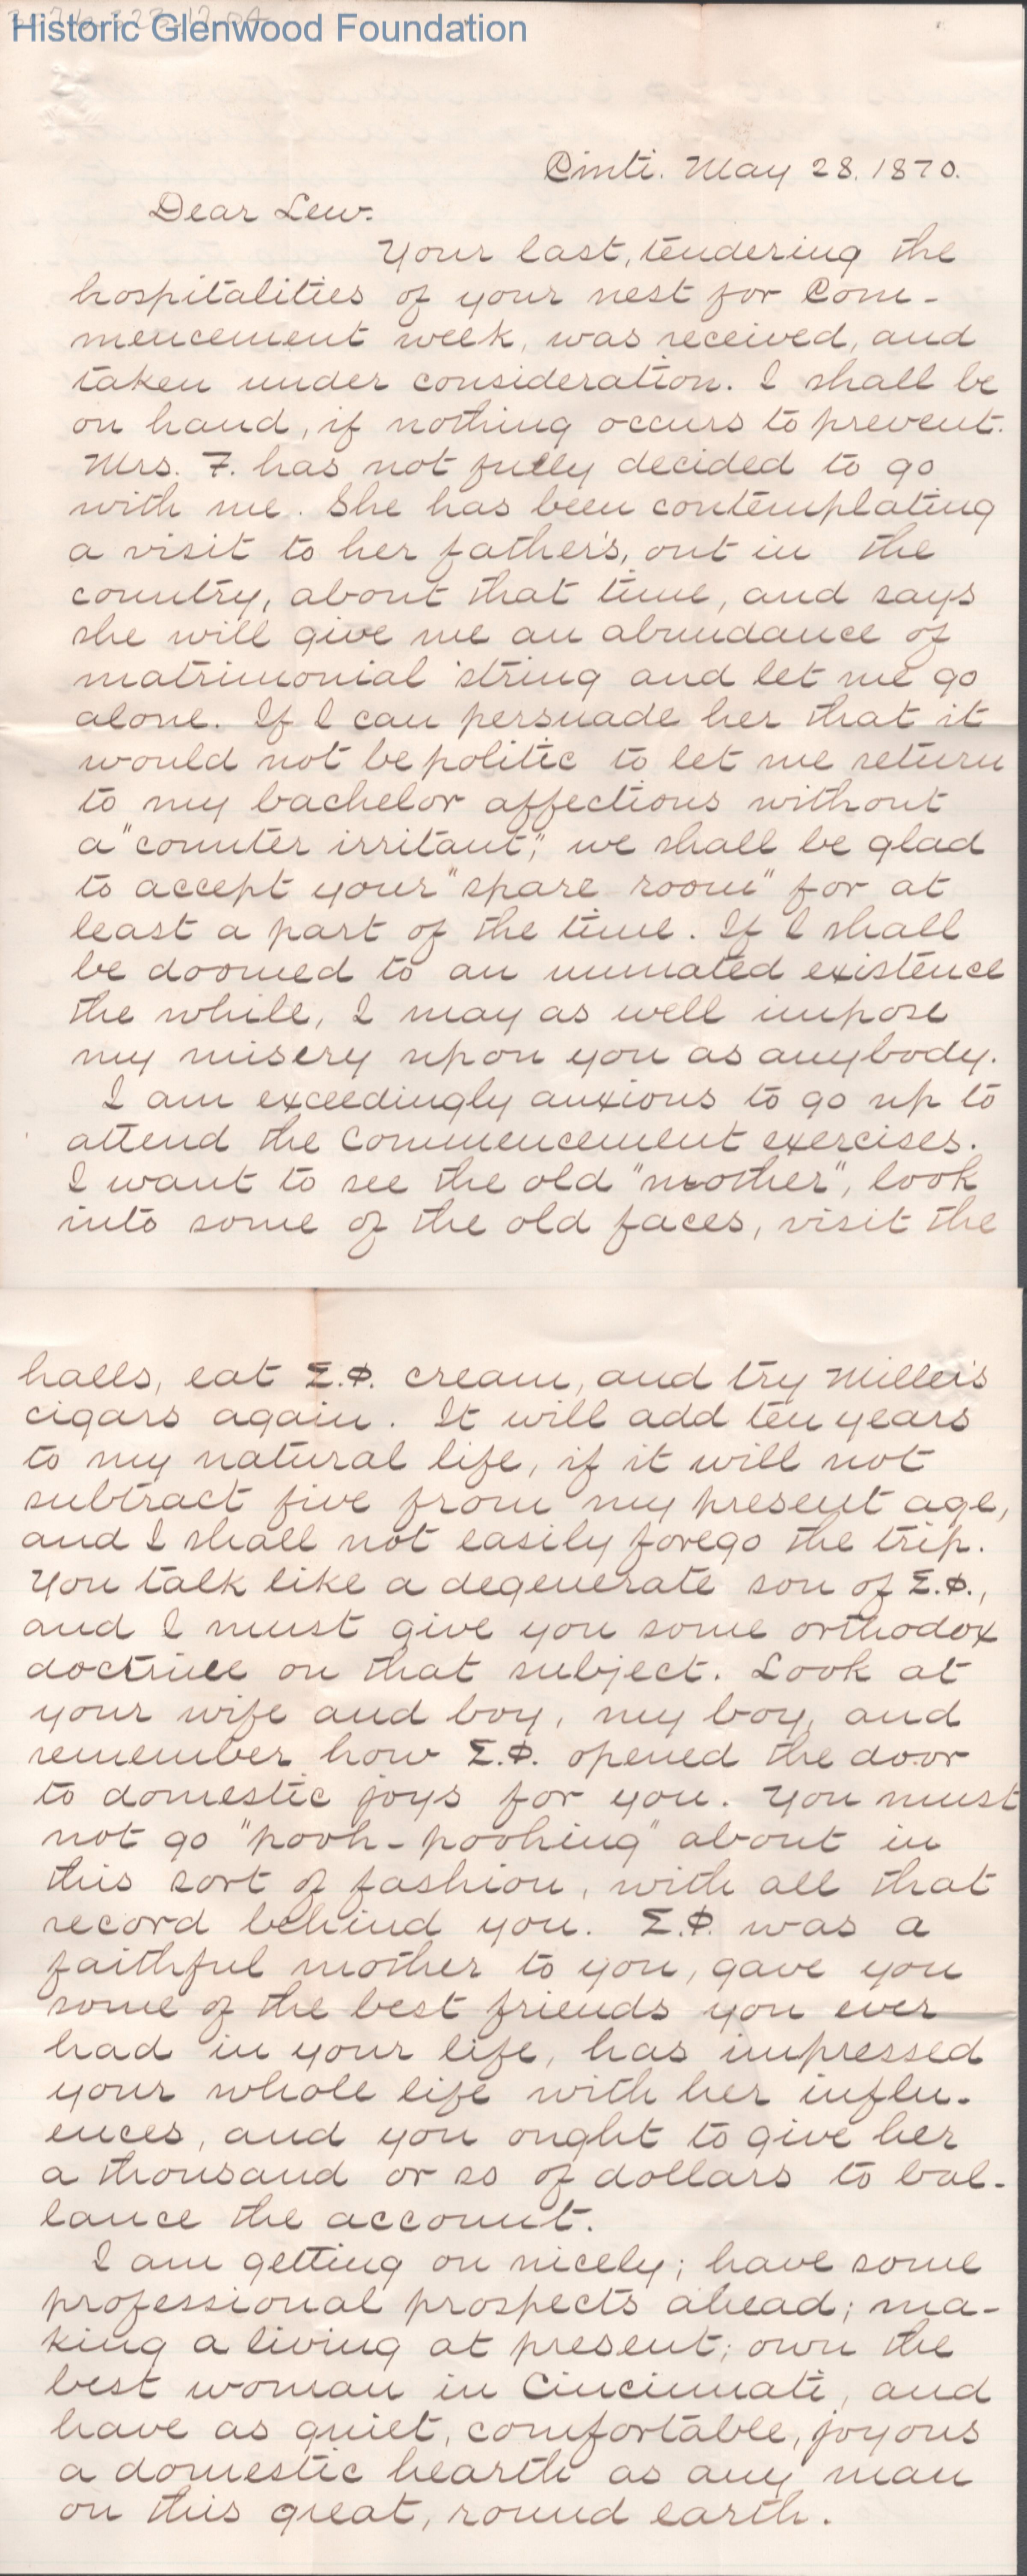 Historic Glenwood Foundation
Cinti. May 28. 1870.
Dear Lew.
Your last, tendering the
hospitalities of your nest for Com-
mencement week, was received, and
taken under consideration. I shall be
on hand, if nothing occurs to prevent.
Mrs. F. has not fully decided to go
with me. She has been contemplating
a visit to her father's, out in the
country, about that time, and says
she will give me an abundance of
matrimonial string and let me go
alone. If I can persuade her that it
would not be politic to let me return
to my bachelor affections without
a "counter irritant," we shall be glad
to accept your "spare room" for at
least a part of the time. If I shall
be doomed to an unmated existence
the while, I may as well impose
my misery upon you as anybody.
I am exceedingly anxious to go up to
attend the Commencement exercises.
I want to see the old "mother", look
into some of the old faces, visit the
halls, eat Σ.Φ. cream, and try Miller's
cigars again. It will add ten years
to my natural life, if it will not
subtract five from my present age,
and I shall not easily forego the trip.
You talk like a degenerate son of Σ.Φ.,
and I must give you some orthodox
doctrine on that subject. Look at
your wife and boy, my boy, and
remember how Σ.Φ. opened the door
to domestic joys for you. You must
not go "pooh-poohing" about in
this sort of fashion, with all that
record behind you. Σ.Φ. was a
faithful mother to you, gave you
some of the best friends you ever
had in your life, has impressed
your whole life with her influ-
ences, and you ought to give her
a thousand or so of dollars to bal-
lance the account.
I am getting on nicely; have some
professional prospects ahead; ma-
king a living at present; own the
best woman in Cincinnati, and
have as quiet, comfortable, joyous
a domestic hearth as any man
on this great, round earth.